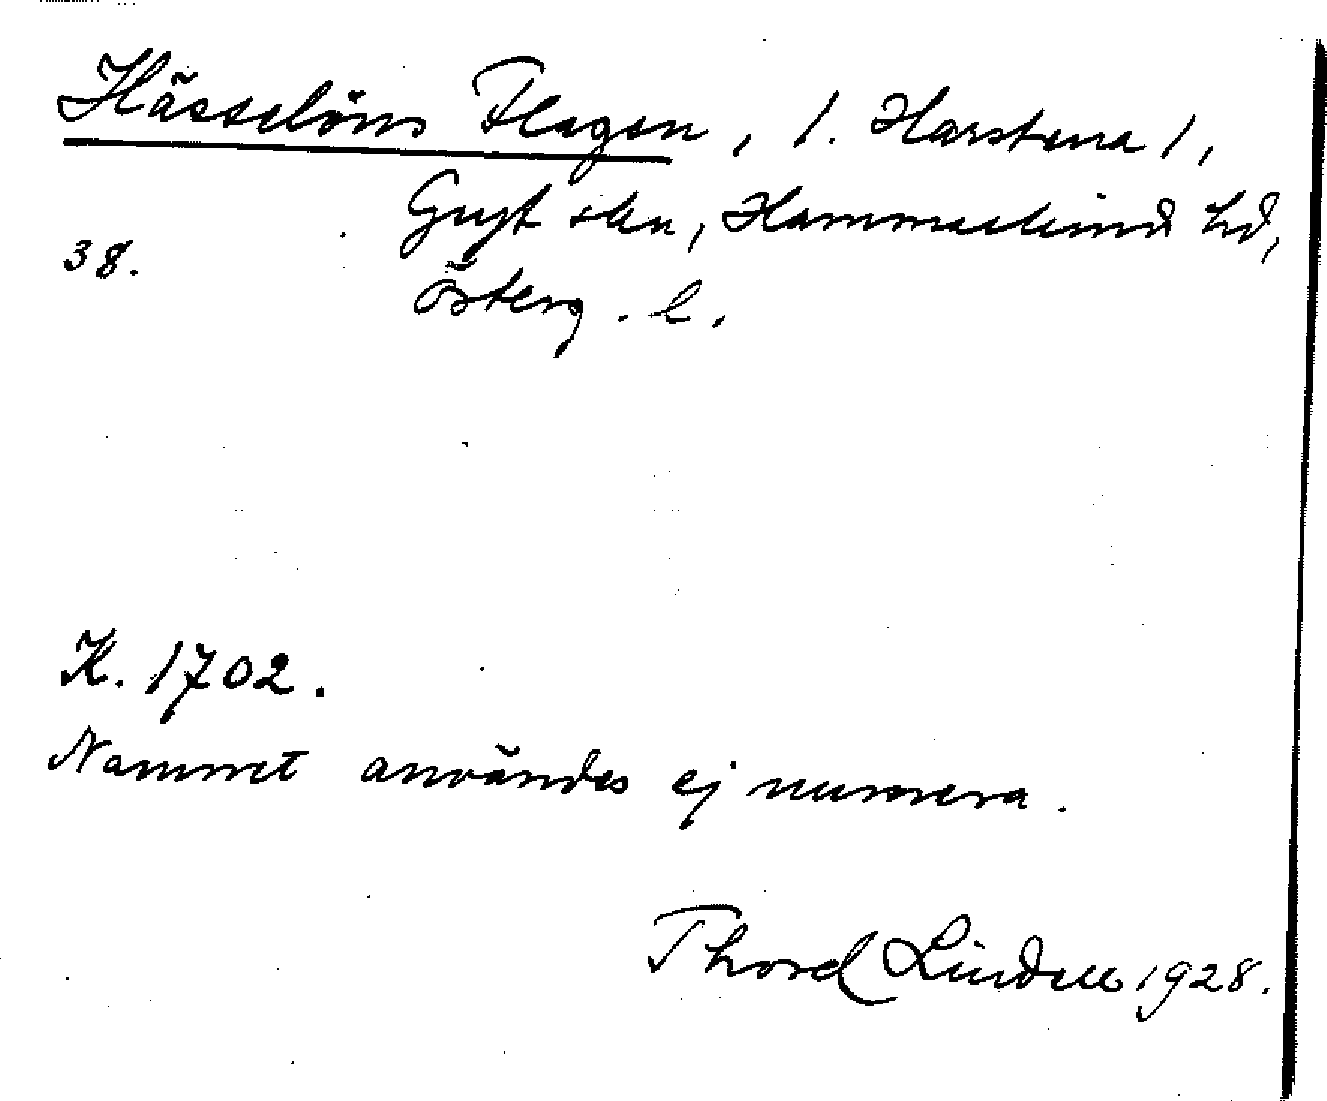 Hässelöns Flagen, 1. Harstena 1,
Gryt skn, Hammarkind hd,
38.
Österg. l.
K. 1702.
Namnet användes ej numera.
Thord Lindell 1928.